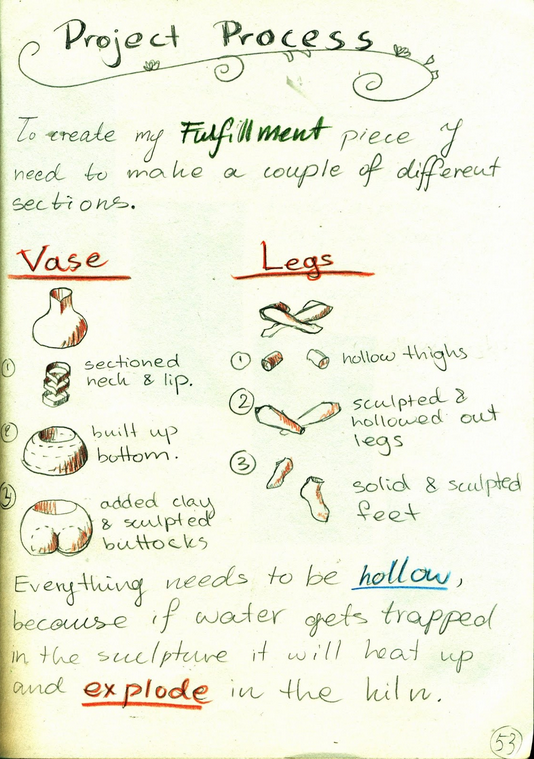 Project Process
To create my Fulfillment piece I
need to make a couple of different
sections.
Vase
1 sectioned
neck & lip.
2 built up
bottom.
3 added clay
& sculpted
buttocks
Legs
1 hollow thighs
2 sculpted &
hollowed out
legs
3 solid & sculpted
feet
Everything needs to be hollow,
because if water gets trapped
in the suclpture it will heat up
and explode in the kiln.
53